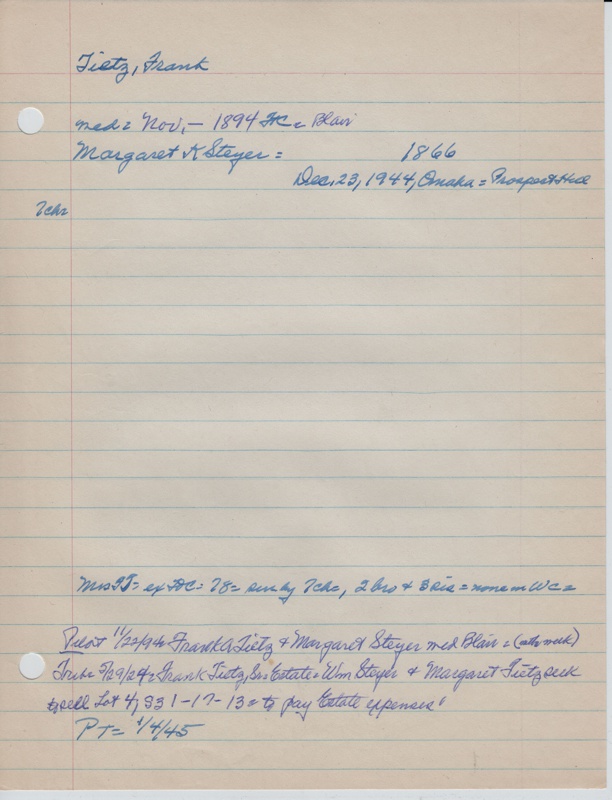 Tietz, Frank
med = Nov, - 1894 FC = Blair
Margaret K Steyer = 1866
Dec, 23, 1944, Omaha = Prospect Hill
7ch=
Mrs FT = ex DC = 78 = sur by 7ch=, 2 bro & 3 sis = none in WC =
Pilot 11/22/94 = Frank A Tietz & Margaret Steyer med Blair = (wk)
Trib = 5/29/24 = Frank Tietz, Sr = Estate = Wm Steyer & Margaret Tietz seek
to sell Lot 4, S31-17-13 = to pay Estate expenses"
PT = 1/4/45